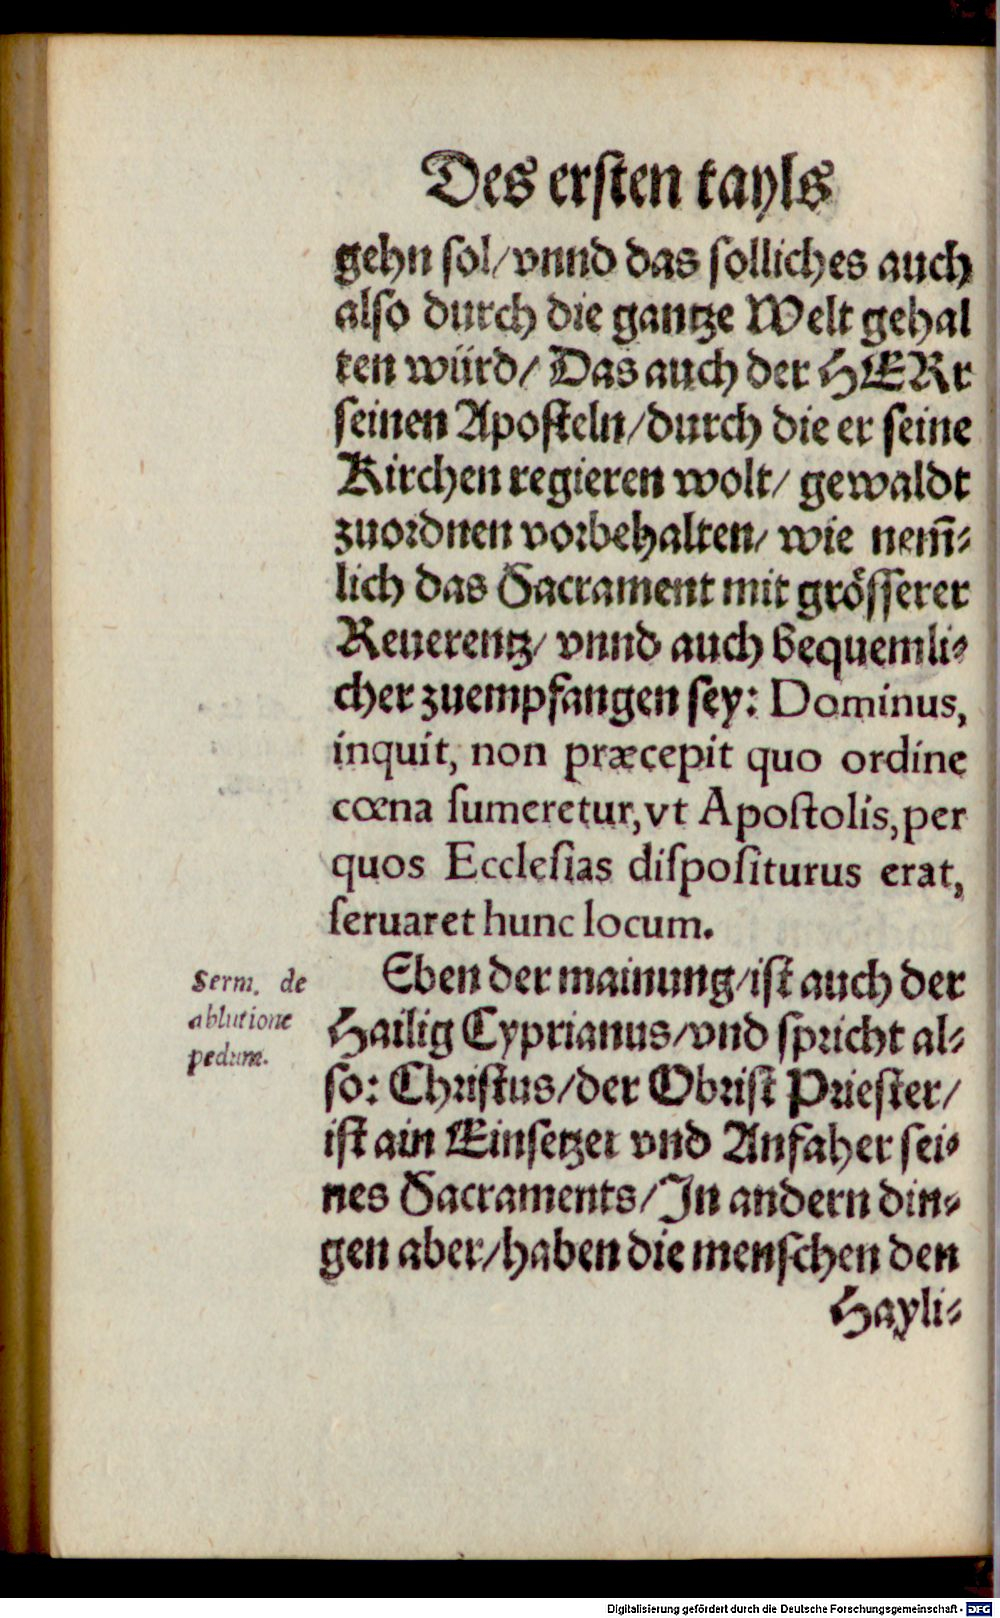 Des ersten tayls
gehn sol/ vnnd das solliches auch
also durch die gantze Welt gehal
ten würd/ Das auch der HERr
seinen Aposteln/ durch die er seine
Kirchen regieren wolt/ gewaldt
zuordnen vorbehalten/ wie nem̃-
lich das Sacrament mit grösserer
Reuerentz/ vnnd auch bequemli-
cher zuempfangen sey: Dominus,
inquit, non præcepit quo ordine
cœna ſumeretur, vt Apoſtolis, per
quos Eccleſias diſpoſiturus erat,
ſeruaret hunc locum.
Serm. de
ablutione
pedum.
Eben der mainung/ ist auch der
Hailig Cyprianus/ vnd spricht al-
so: Christus/ der Obrist Priester/
ist ain Einsetzer vnd Anfaher sei-
nes Sacraments/ In andern din-
gen aber/ haben die menschen den
Hayli-
Digitalisierung gefördert durch die Deutsche Forschungsgemeinschaft - DFG